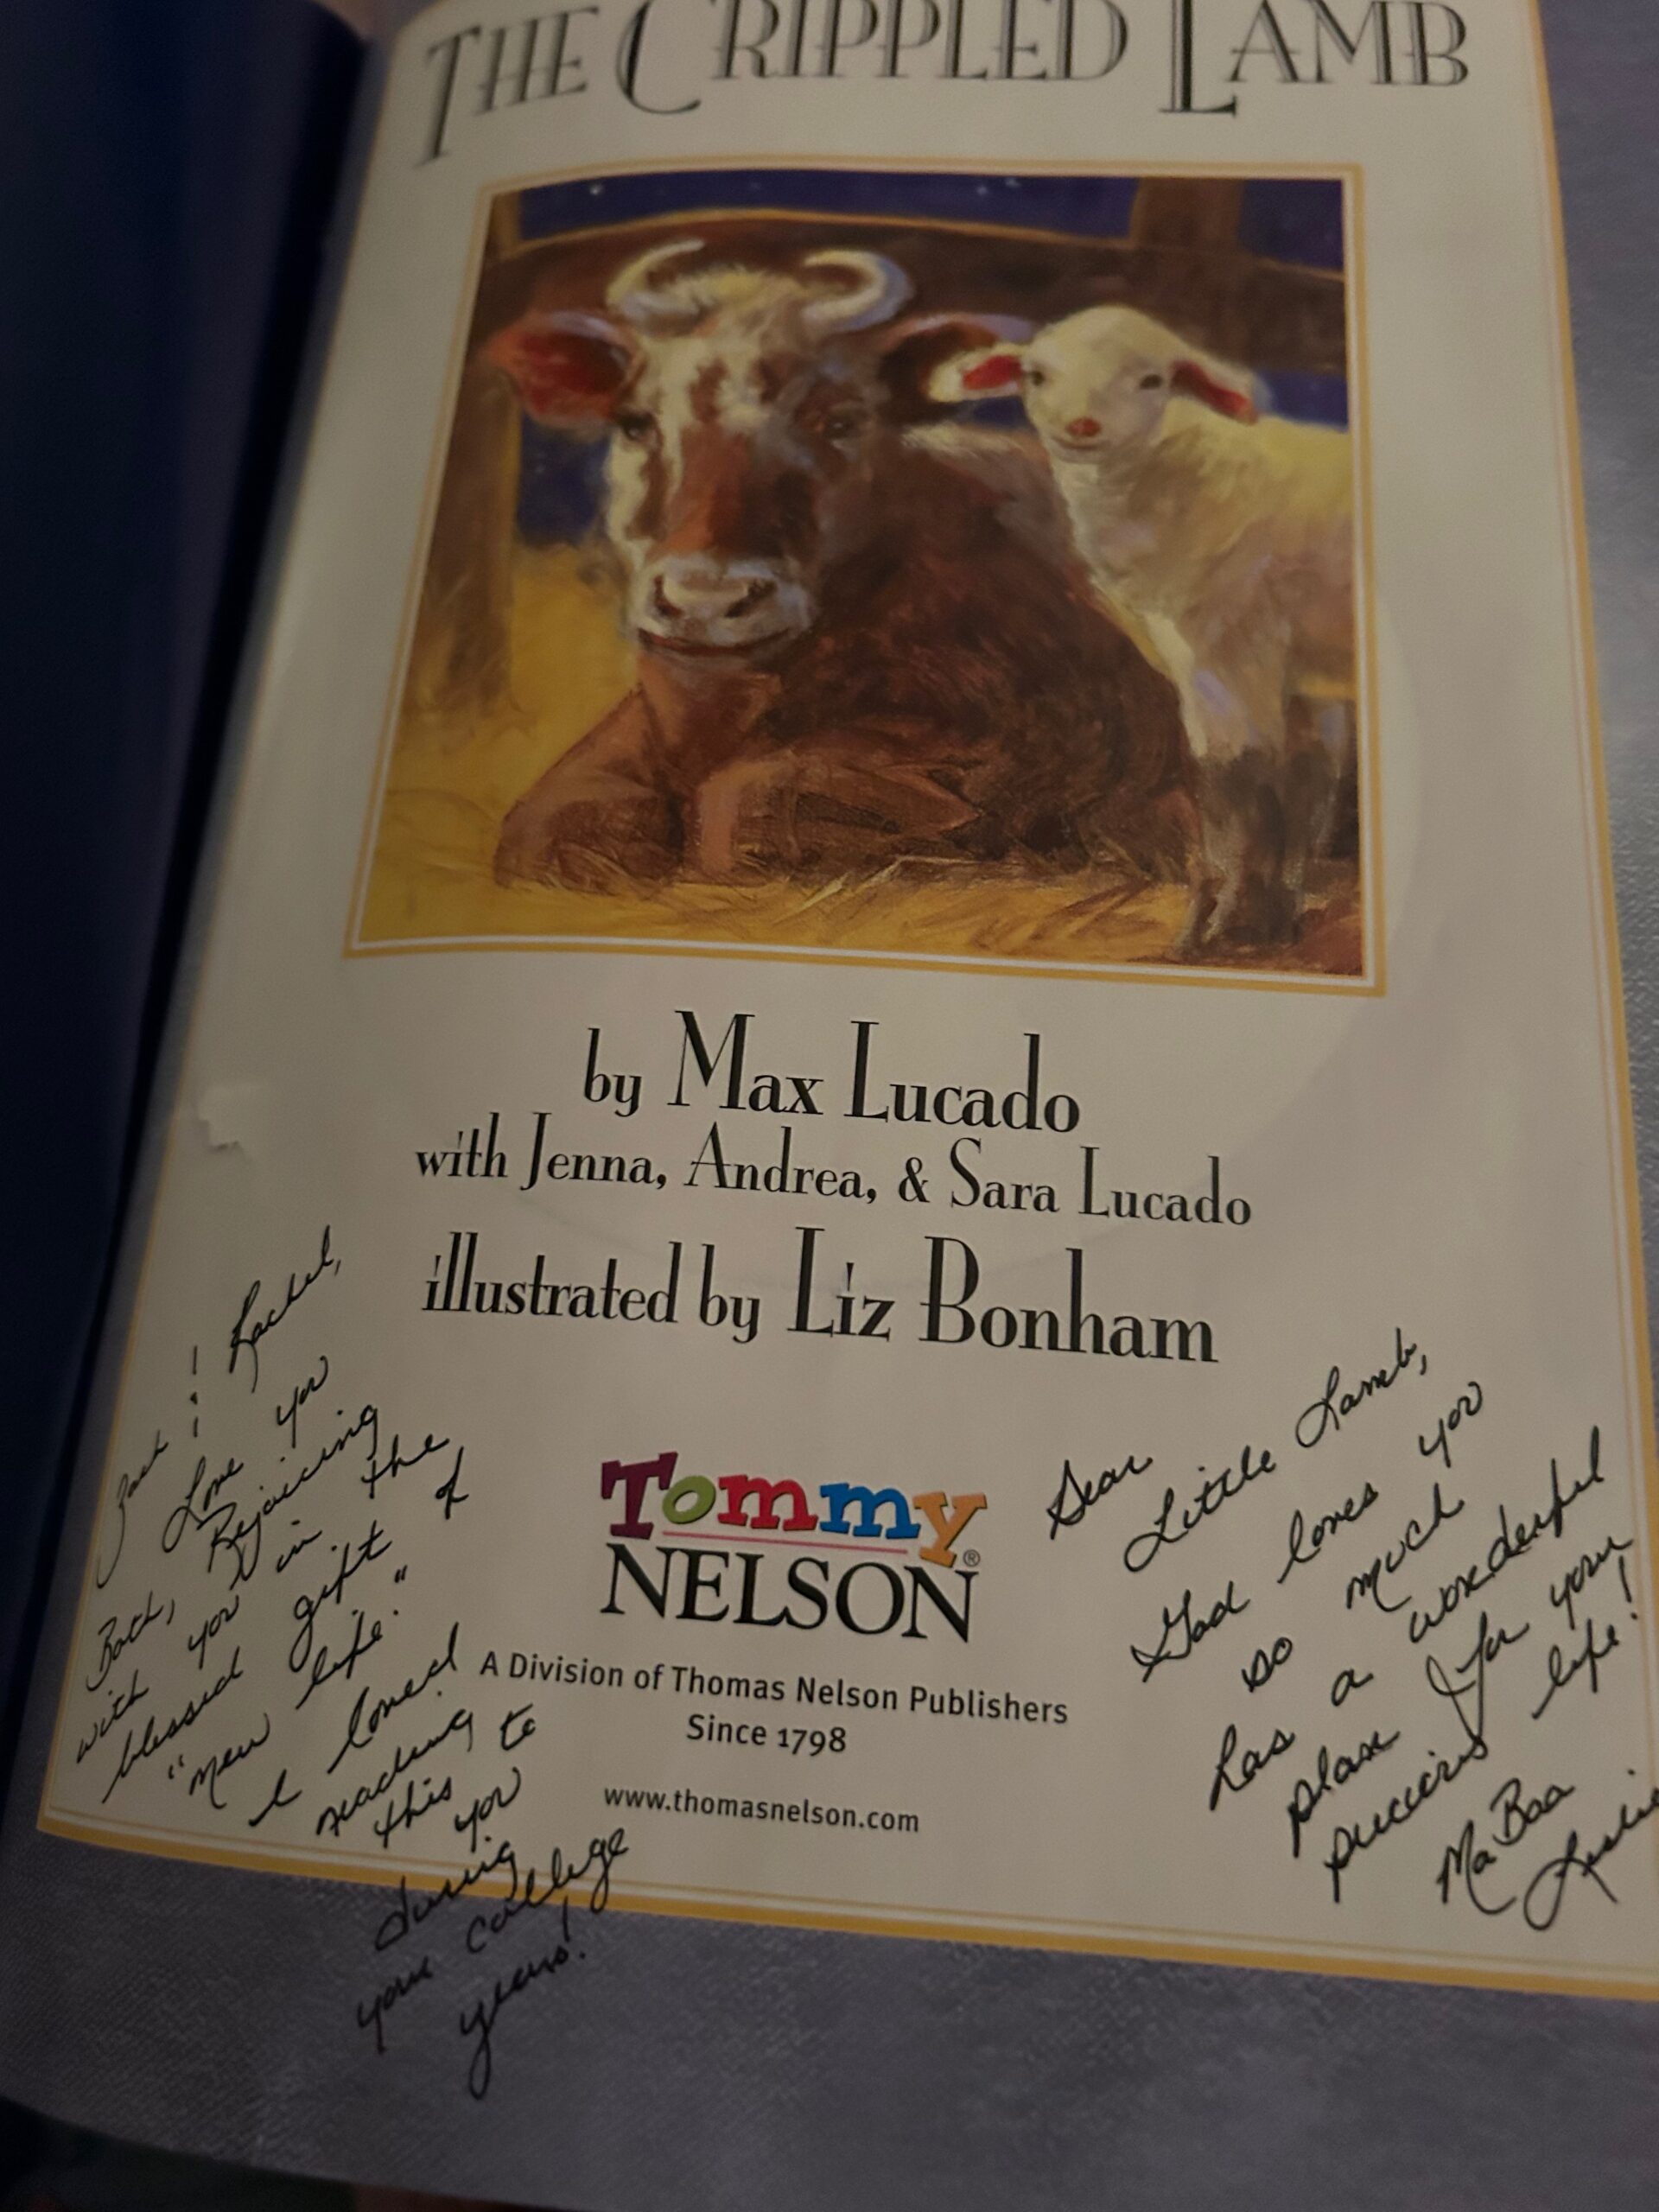 THE CRIPPLED LAMB
by Max Lucado
with Jenna, Andrea, & Sara Lucado
illustrated by Liz Bonham
Tommy
NELSON®
A Division of Thomas Nelson Publishers
Since 1798
www.thomasnelson.com
Zach & Rachel,
Love you
Both, Rejoicing
with you in the
blessed gift of
"new life."
I loved
reading
this to
you
during
your college
years!
Dear
Little Lamb,
God loves you
so much
has a wonderful
plan for your
precious life!
Ma Baa
Leslie